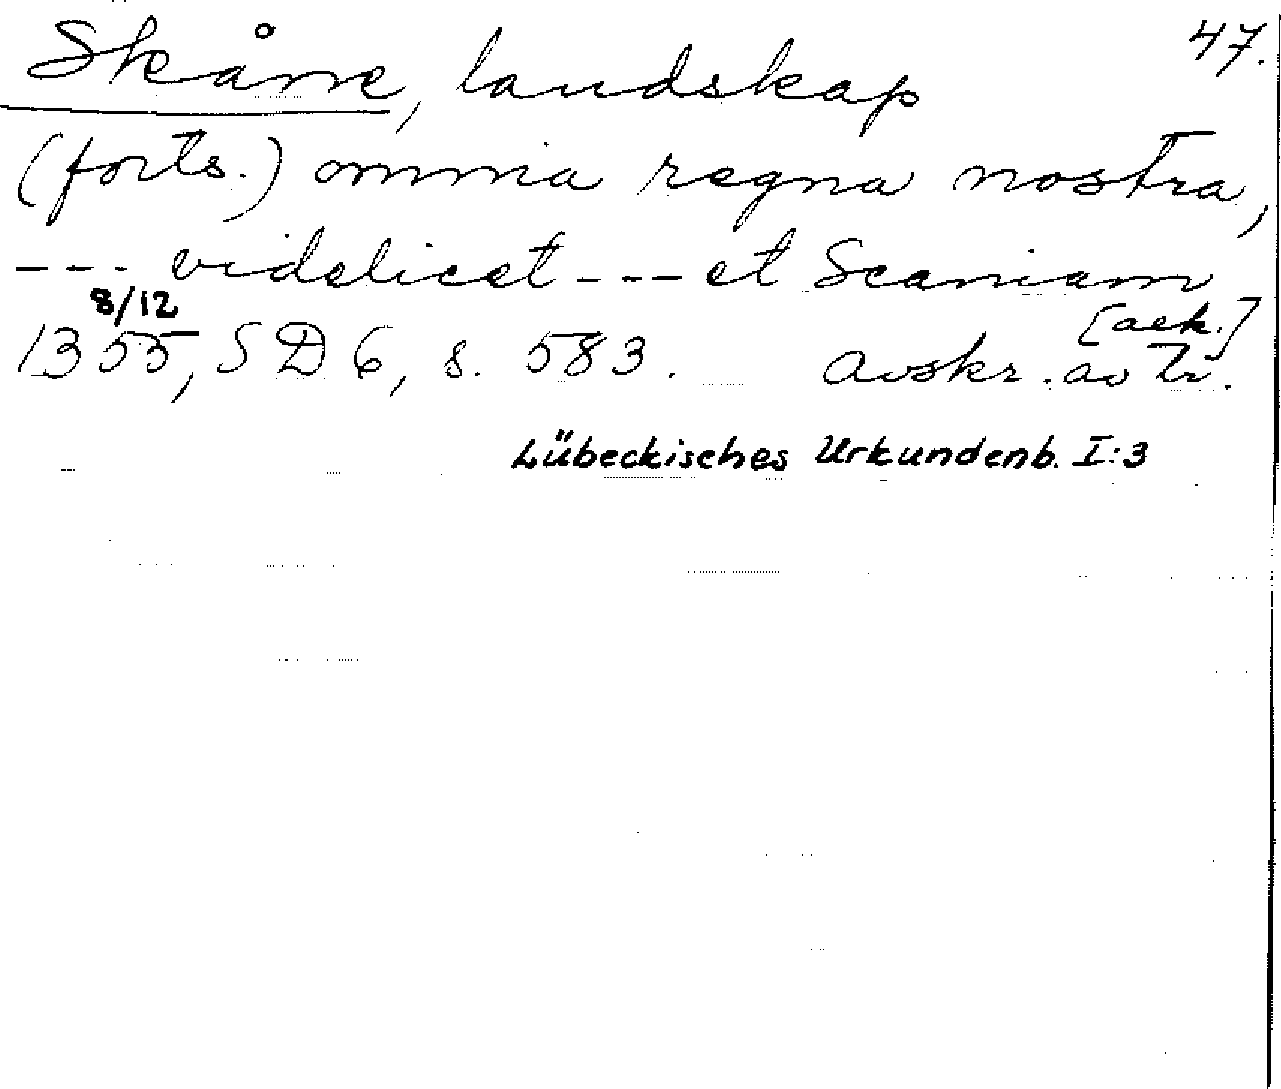 Skåne, landskap 47.
(forts.) omnia regna nostra,
--- videlicet --- et Scaniam
8/12 [ack.]
1355, SD 6, s. 583. Avskr. av tr.
Lübeckisches Urkundenb. I:3